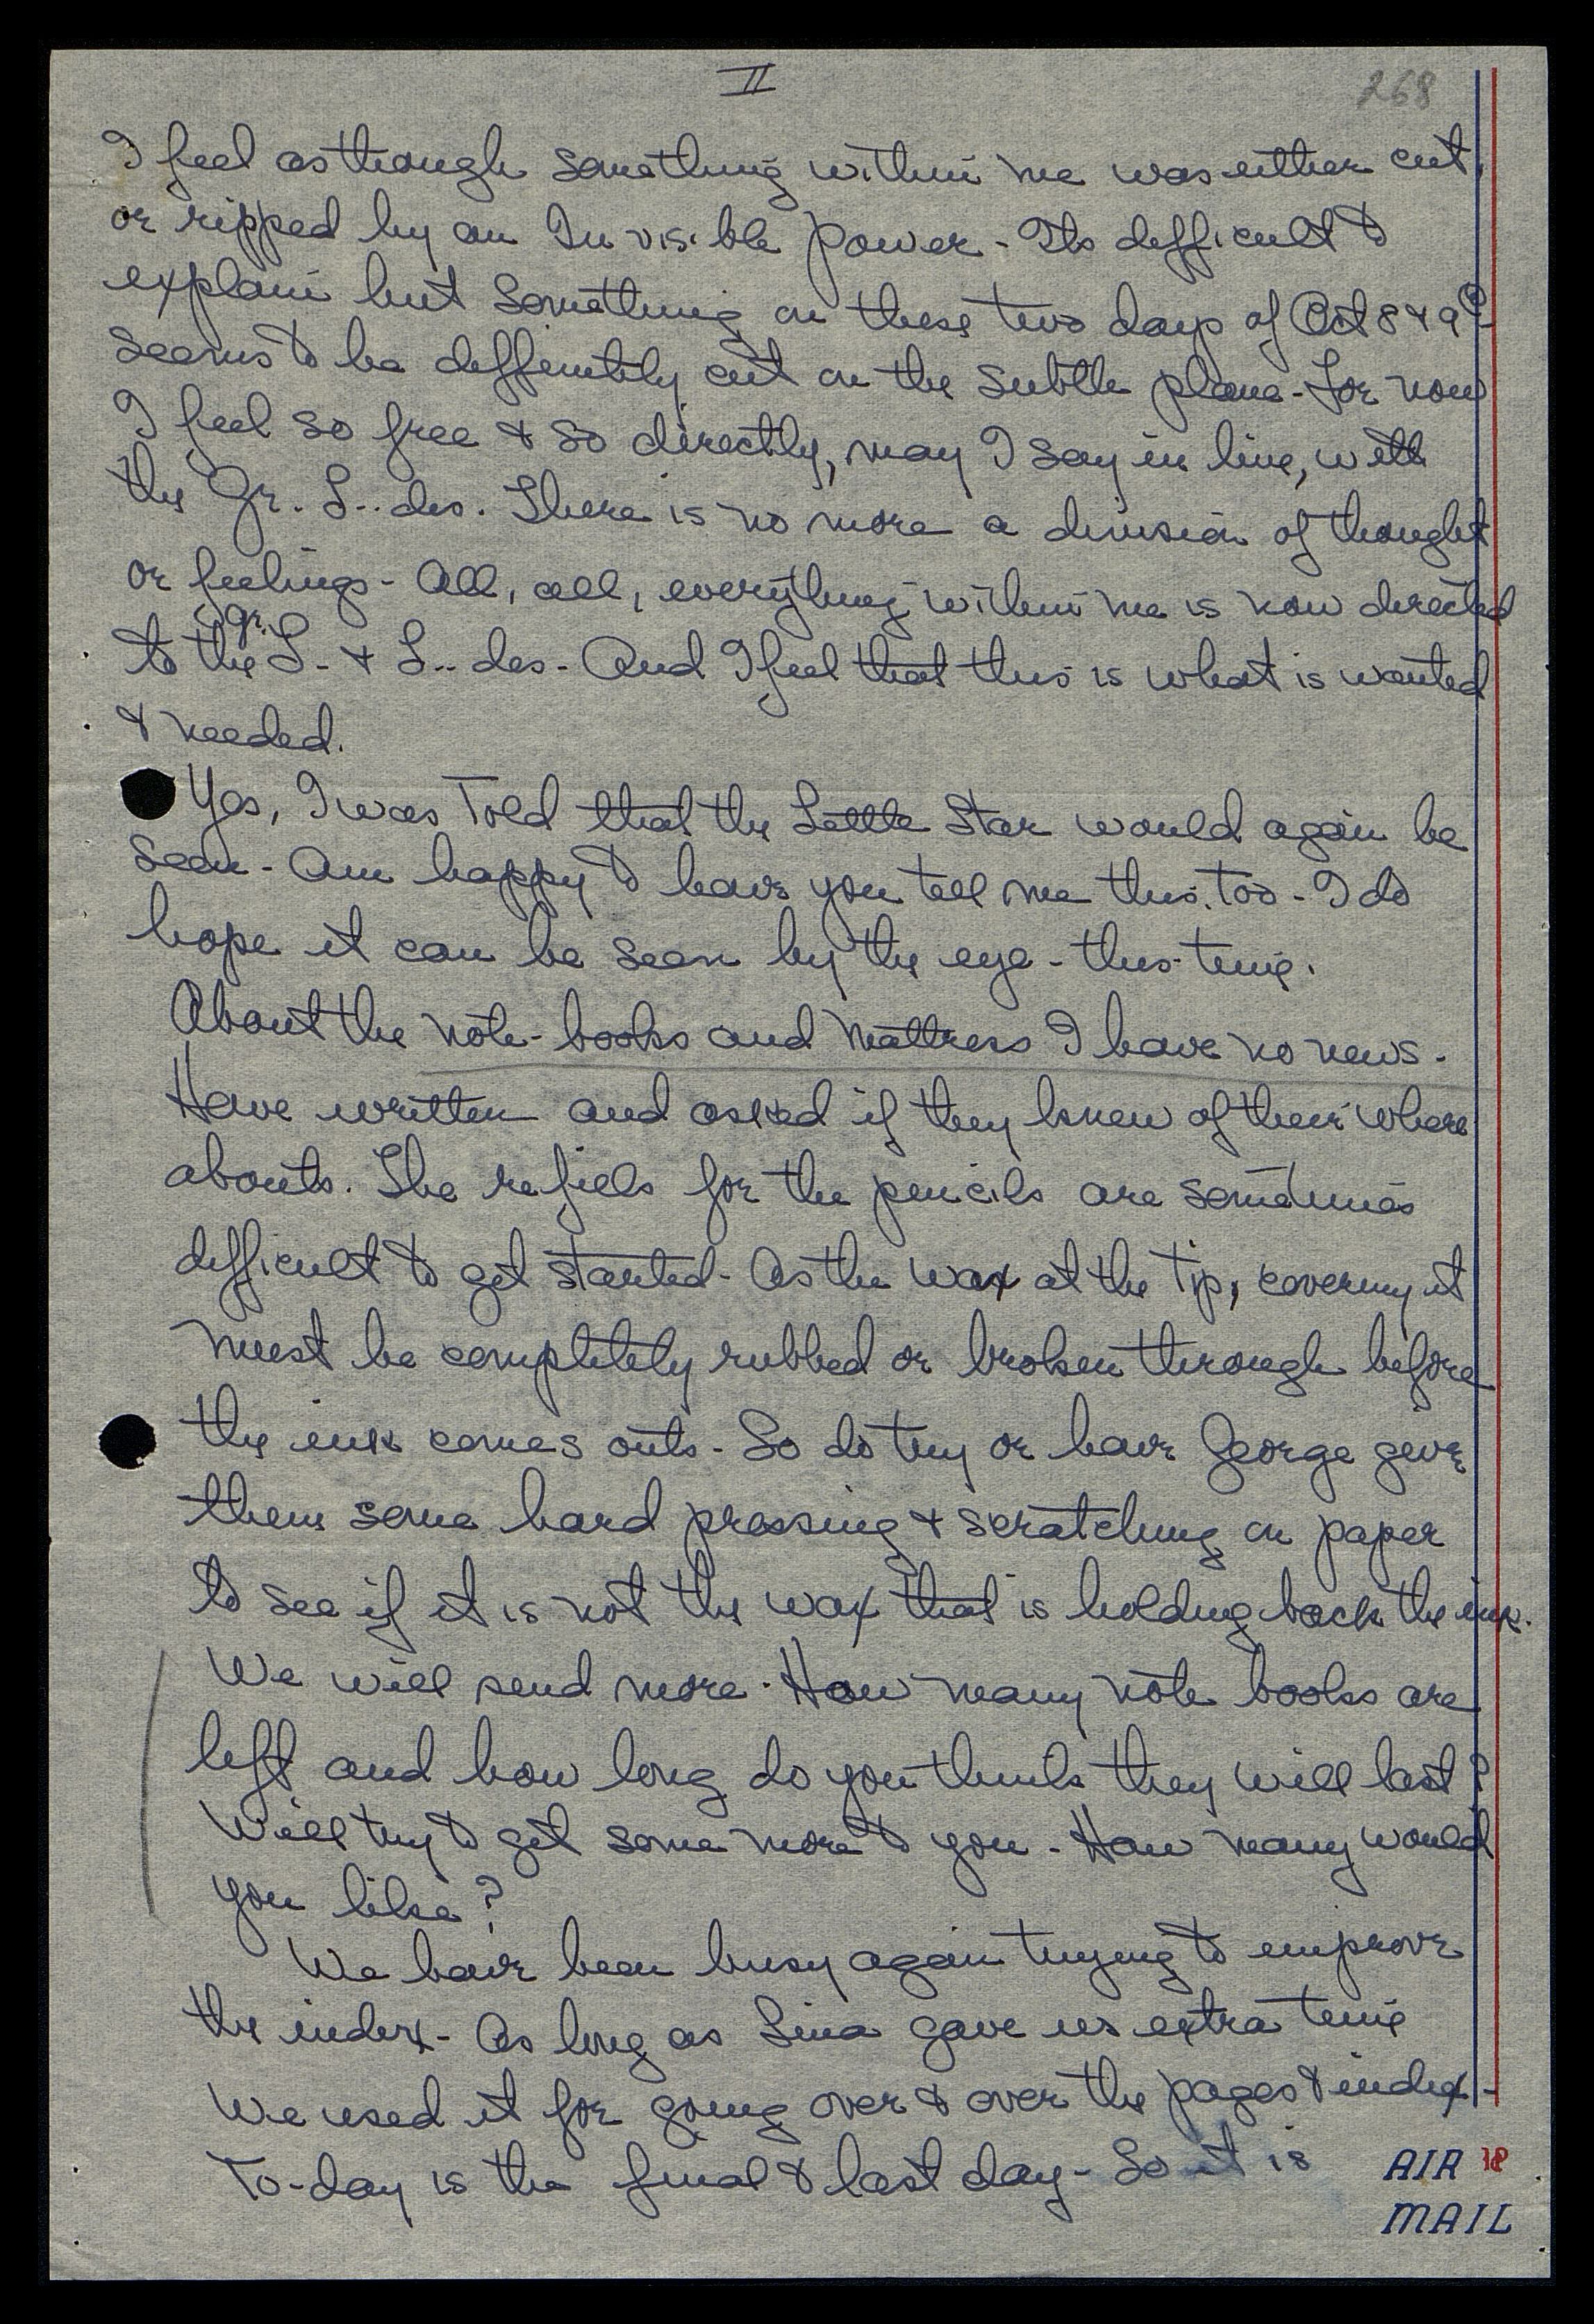 II
268
I feel as though something within me was either cut,
or ripped by an Invisible power - Its defficult to
explain but something on these two days of Oct 8 & 9th
seems to be deffinitily cut on the subtle plane - For now
I feel so free & so directly, may I say in line, with
the Gr. L.. des. There is no more a division of thought
or feelings - All, all, everything within me is now directed
to the gr. L - & L.. des - And I feel that this is what is wanted
& needed.
Yes, I was Told that the Little Star would again be
seen - Am happy to have you tell me this, too - I do
hope it can be seen by the eye - this time.
About the note-books and mattress I have no news -
Have written and asked if they knew of their where
abouts. The refiels for the pencils are sometimes
difficult to get started - As the wax at the tip, covering it
must be completely rubbed or broken through before
the ink comes outs - So do try or have George give
them some hard pressing & scratching on paper
to see if it is not the wax that is holding back the ink.
We will send more. How many note books are
left and how long do you think they will last?
Will try to get some more to you - How many would
you like?
We have been busy again trying to improve
the index - As long as Sina gave us extra time
We used it for going over & over the pages & index -
To-day is the final & last day - So it is
AIR 18
MAIL